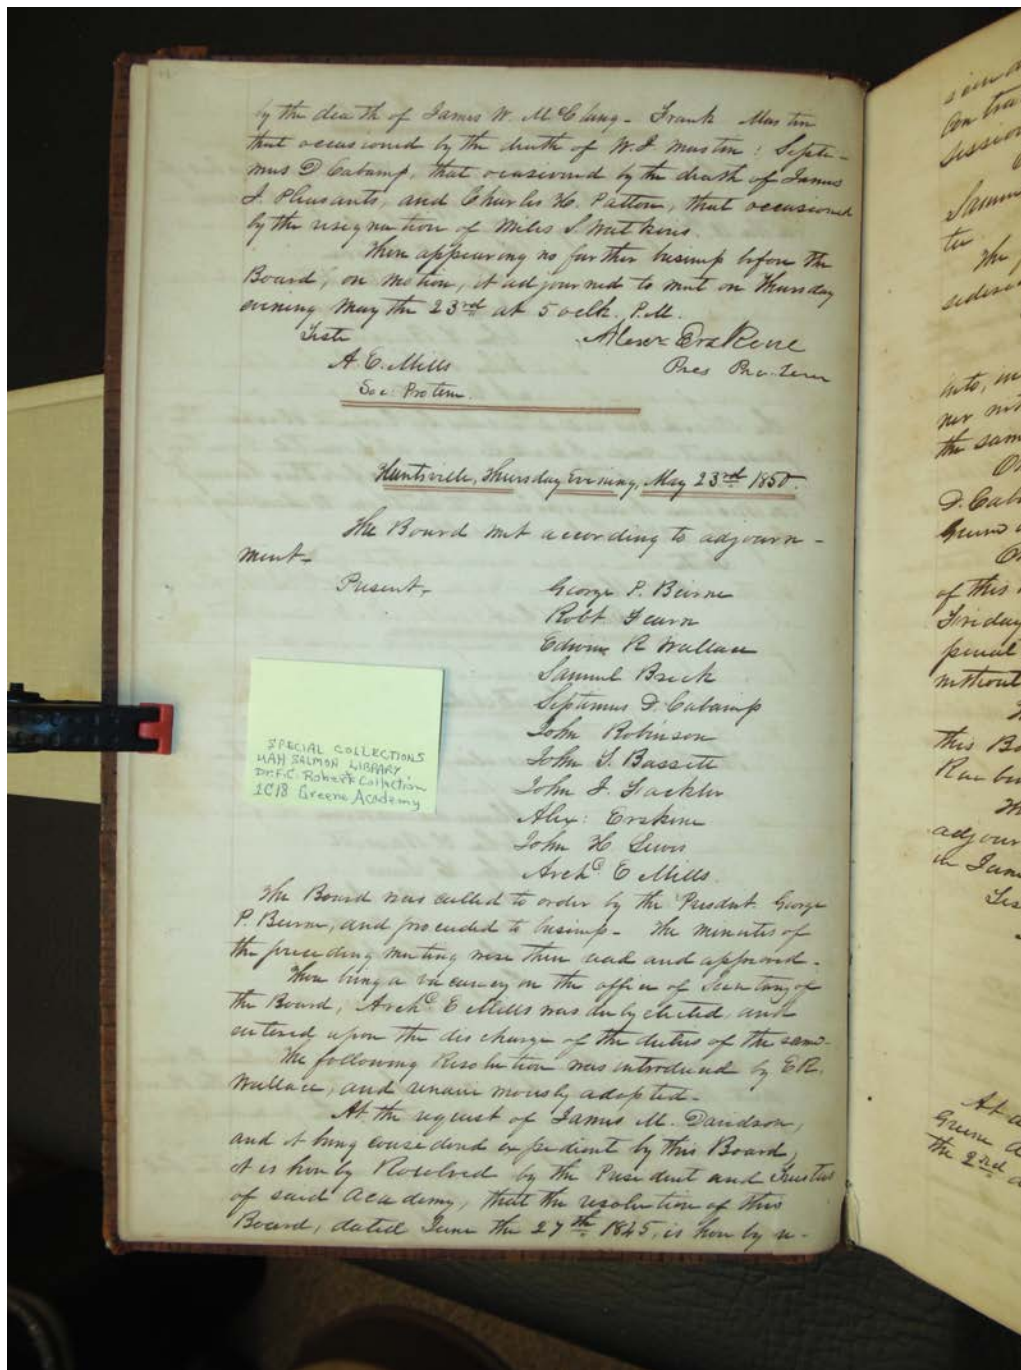 by the death of James W. McClung - Frank Mastin
that occasioned by the death of W. J. Mastin: Septi-
mus D Cabaniss, that occasioned by the death of James
J. Pleasants, and Charles H. Patton, that occasioned
by the resignation of Miles S. Watkins.
There appearing no further business before the
Board, on motion, it adjourned to meet on Thursday
evening May the 23rd at 5 oclk. P.M.
Teste
Alexr Erskine
A. E. Mills
Pres Pro-tem
Sec. Protem.
Huntsville, Thursday Evening, May 23rd 1850.
The Board met according to adjourn-
ment.
Present.
George P. Beirne
Robt Fearn
Edwin R Wallace
Samuel Breck
Septimus D. Cabaniss
John Robinson
John Y. Bassett
John J. Fackler
Alex: Erskine
John H Lewis
Archd. E Mills.
The Board was called to order by the Presdnt. George
P. Beirne, and proceeded to business. The minutes of
the preceding meeting were then read and approved.
There being a vacancy on the office of Secretary of
the Board, Archd. E Mills was duly elected, and
entered upon the discharge of the duties of the same.
The following Resolution was introduced by E R.
Wallace, and unanimously adopted.
At the request of James M. Davidson,
and it being considered expedient by this Board,
it is hereby Resolved by the President and Trustees
of said Academy, that the resolution of this
Board, dated June the 27th. 1845, is hereby re-
SPECIAL COLLECTIONS
UAH SALMON LIBRARY
Dr. F.C. Roberts Collection
1C18 Greene Academy